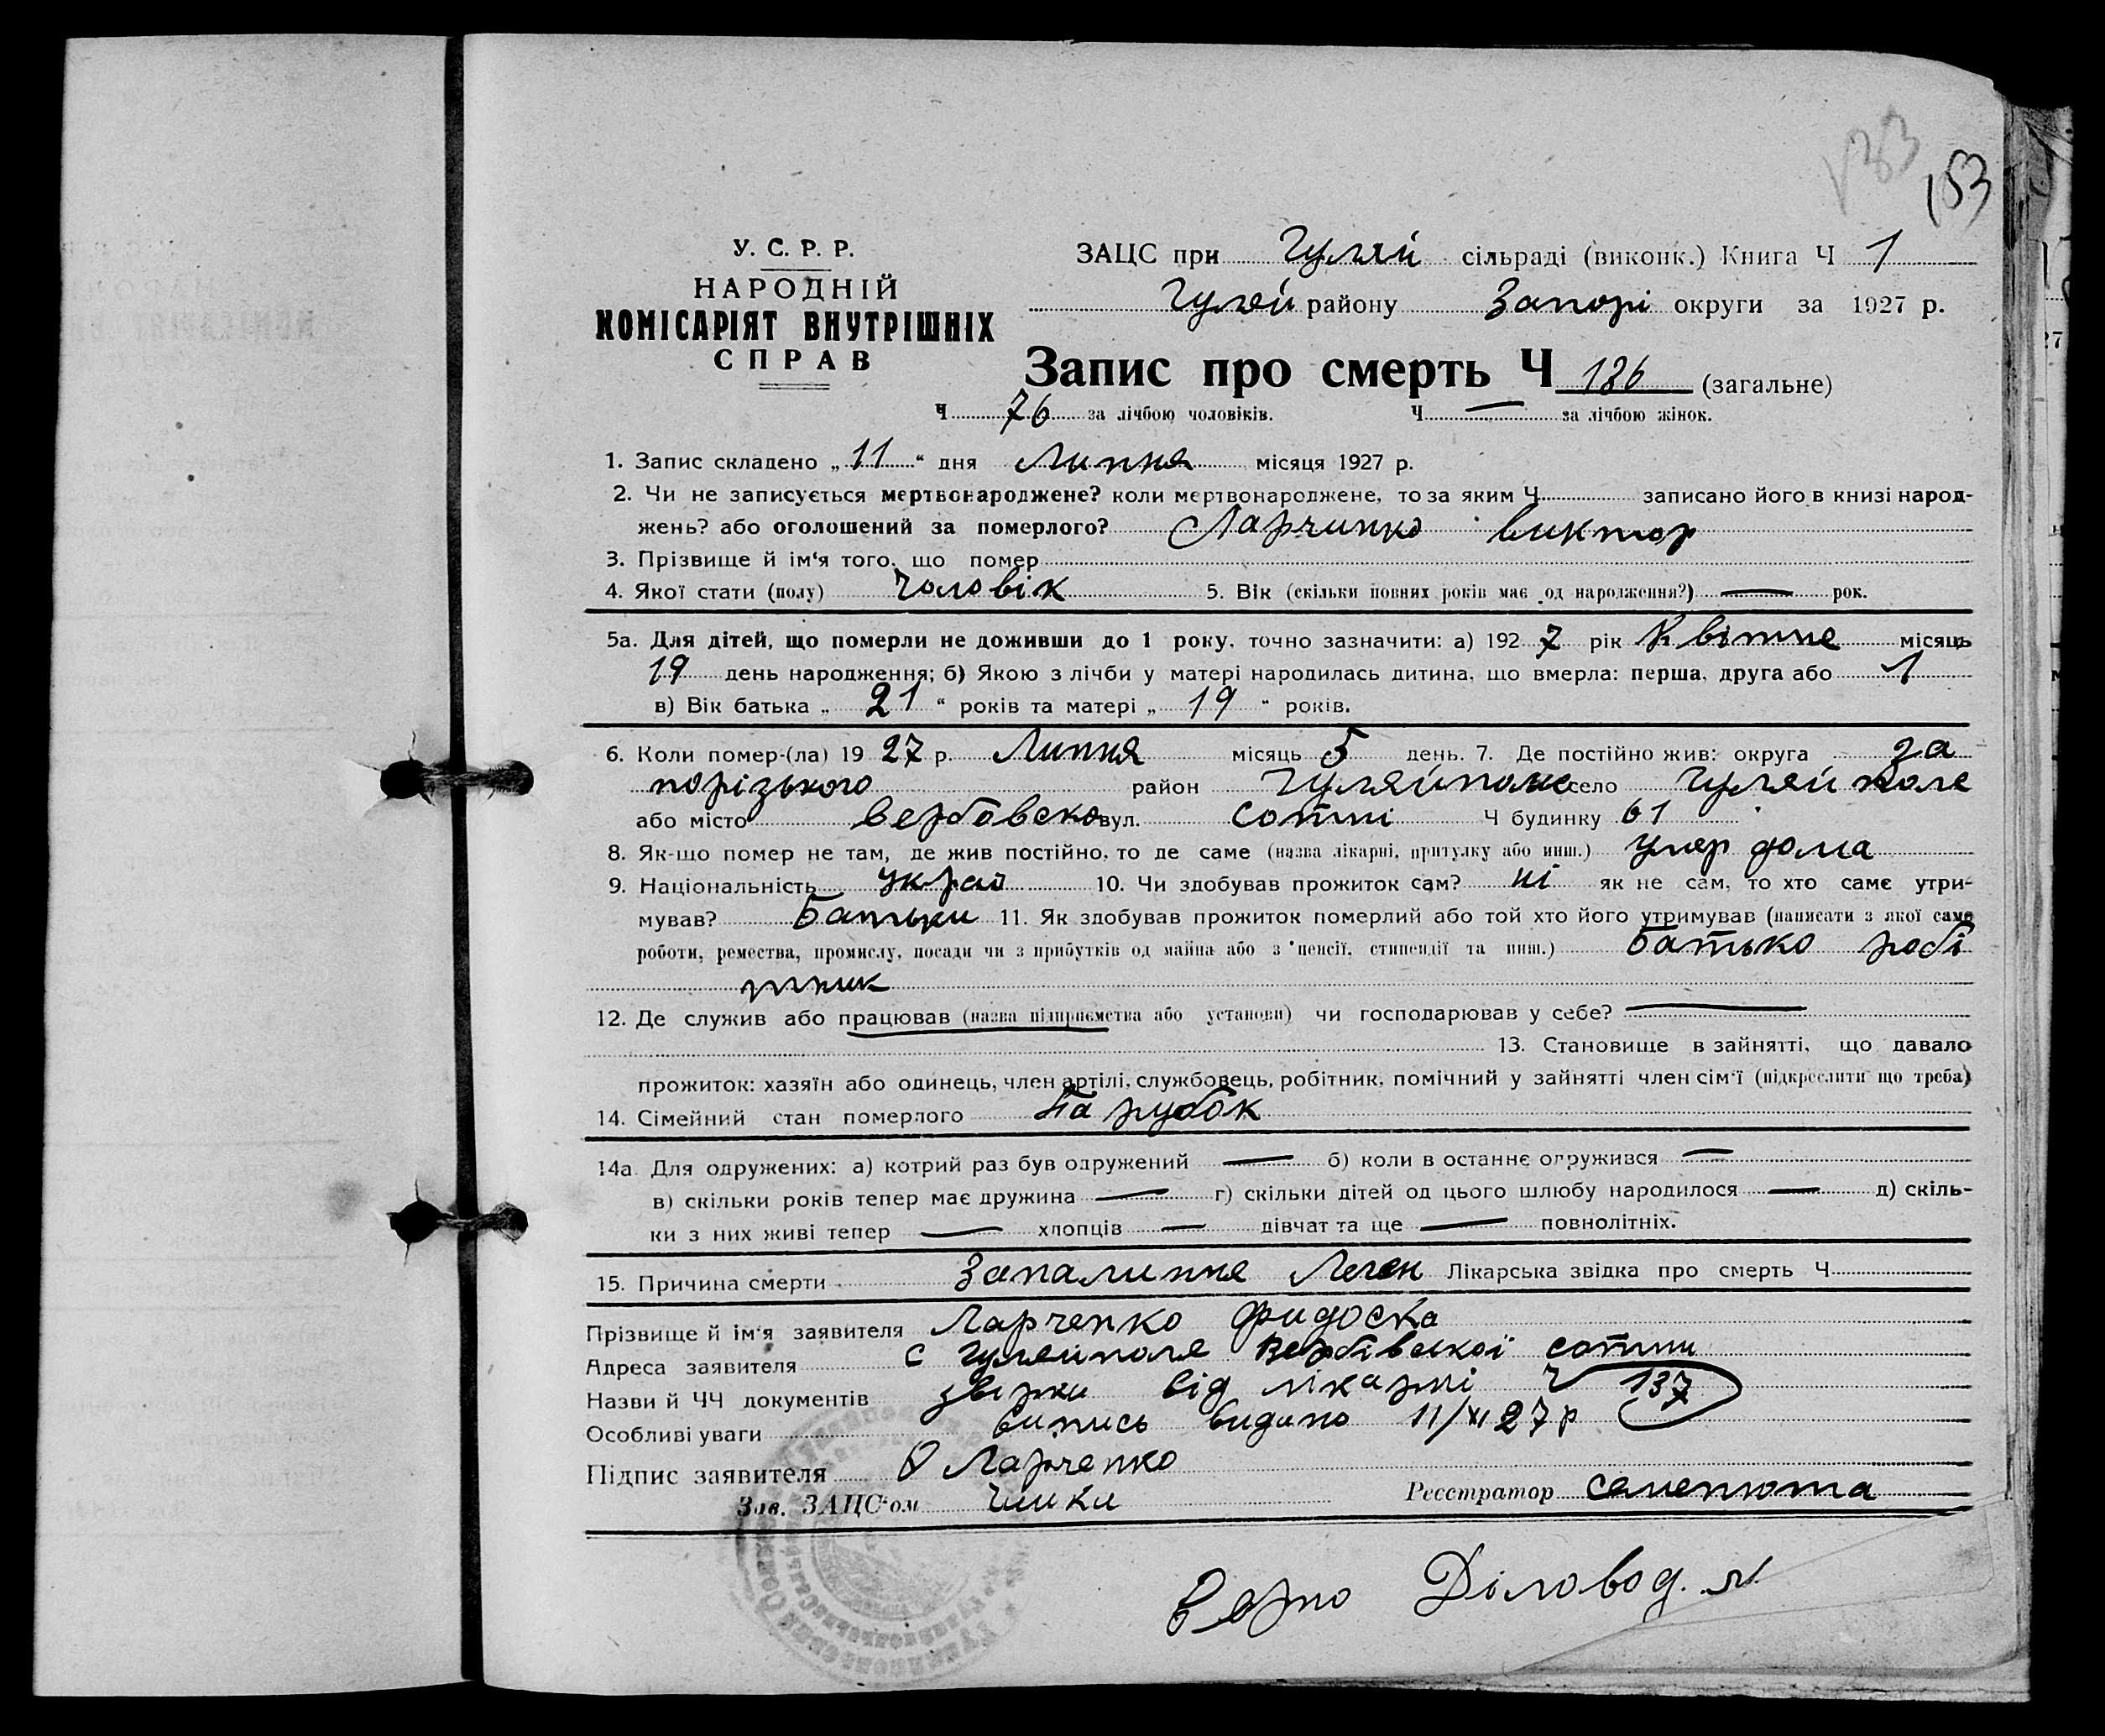 183
153
У. С. Р. Р.
НАРОДНІЙ
КОМІСАРІЯТ ВНУТРІШНІХ
СПРАВ
ЗАЦС при Гуляй сільраді (виконк.) Книга Ч 1
Гуляй району Запорі округи за 1927 р.
Запис про смерть Ч 186 (загальне)
Ч 76 за лічбою чоловіків. Ч — за лічбою жінок.
1. Запис складено „11“ дня Липня місяця 1927 р.
2. Чи не записується мертвонароджене? коли мертвонароджене, то за яким Ч записано його в книзі народ-
жень? або оголошений за померлого? Ларчинко Виктор
3. Прізвище й ім‘я того, що помер
4. Якої стати (полу) Чоловік 5. Вік (скільки повних років має од народження?) — рок.
5а. Для дітей, що померли не доживши до 1 року, точно зазначити: а) 192 7 рік Квітне місяць
19 день народження; б) Якою з лічби у матері народилась дитина, що вмерла: перша, друга або 1
в) Вік батька „ 21 “ років та матері „ 19 “ років.
6. Коли помер-(ла) 19 27 р. Липня місяць 5 день. 7. Де постійно жив: округа За
порізького район Гуляйполе село Гуляй поле
або місто Вербовско вул. сотні Ч будинку 61
8. Як-що помер не там, де жив постійно, то де саме (назва лікарні, притулку або инш.) умер дома
9. Національність украі 10. Чи здобував прожиток сам? ні як не сам, то хто саме утри-
мував? Батьки 11. Як здобував прожиток померлий або той хто його утримував (написати з якої саме
роботи, ремества, промислу, посади чи з прибутків од майна або з пенсії, стипендії та инш.) Батько робі
тник
12. Де служив або працював (назва підприємства або установи) чи господарював у себе? —
13. Становище в зайнятті, що давало
прожиток: хазяїн або одинець, член артілі, службовець, робітник, помічний у зайнятті член сім‘ї (підкреслити що треба)
14. Сімейний стан померлого Парубок
14а Для одружених: а) котрий раз був одружений — б) коли в останнє одружився —
в) скільки років тепер має дружина — г) скільки дітей од цього шлюбу народилося — д) скіль-
ки з них живі тепер — хлопців — дівчат та ще — повнолітніх.
15. Причина смерти Запалипне Леген Лікарська звідка про смерть Ч
Прізвище й ім‘я заявителя Ларченко Фидоска
Адреса заявителя с Гуляйполя Вербівської сотни
Назви й ЧЧ документів від лікарні Ч 137
Особливі уваги випись видано 11/XI 27 р
Підпис заявителя О Ларченко
Зав. ЗАЦС‘ом Реєстратор Семенюта
Верно Діловод.